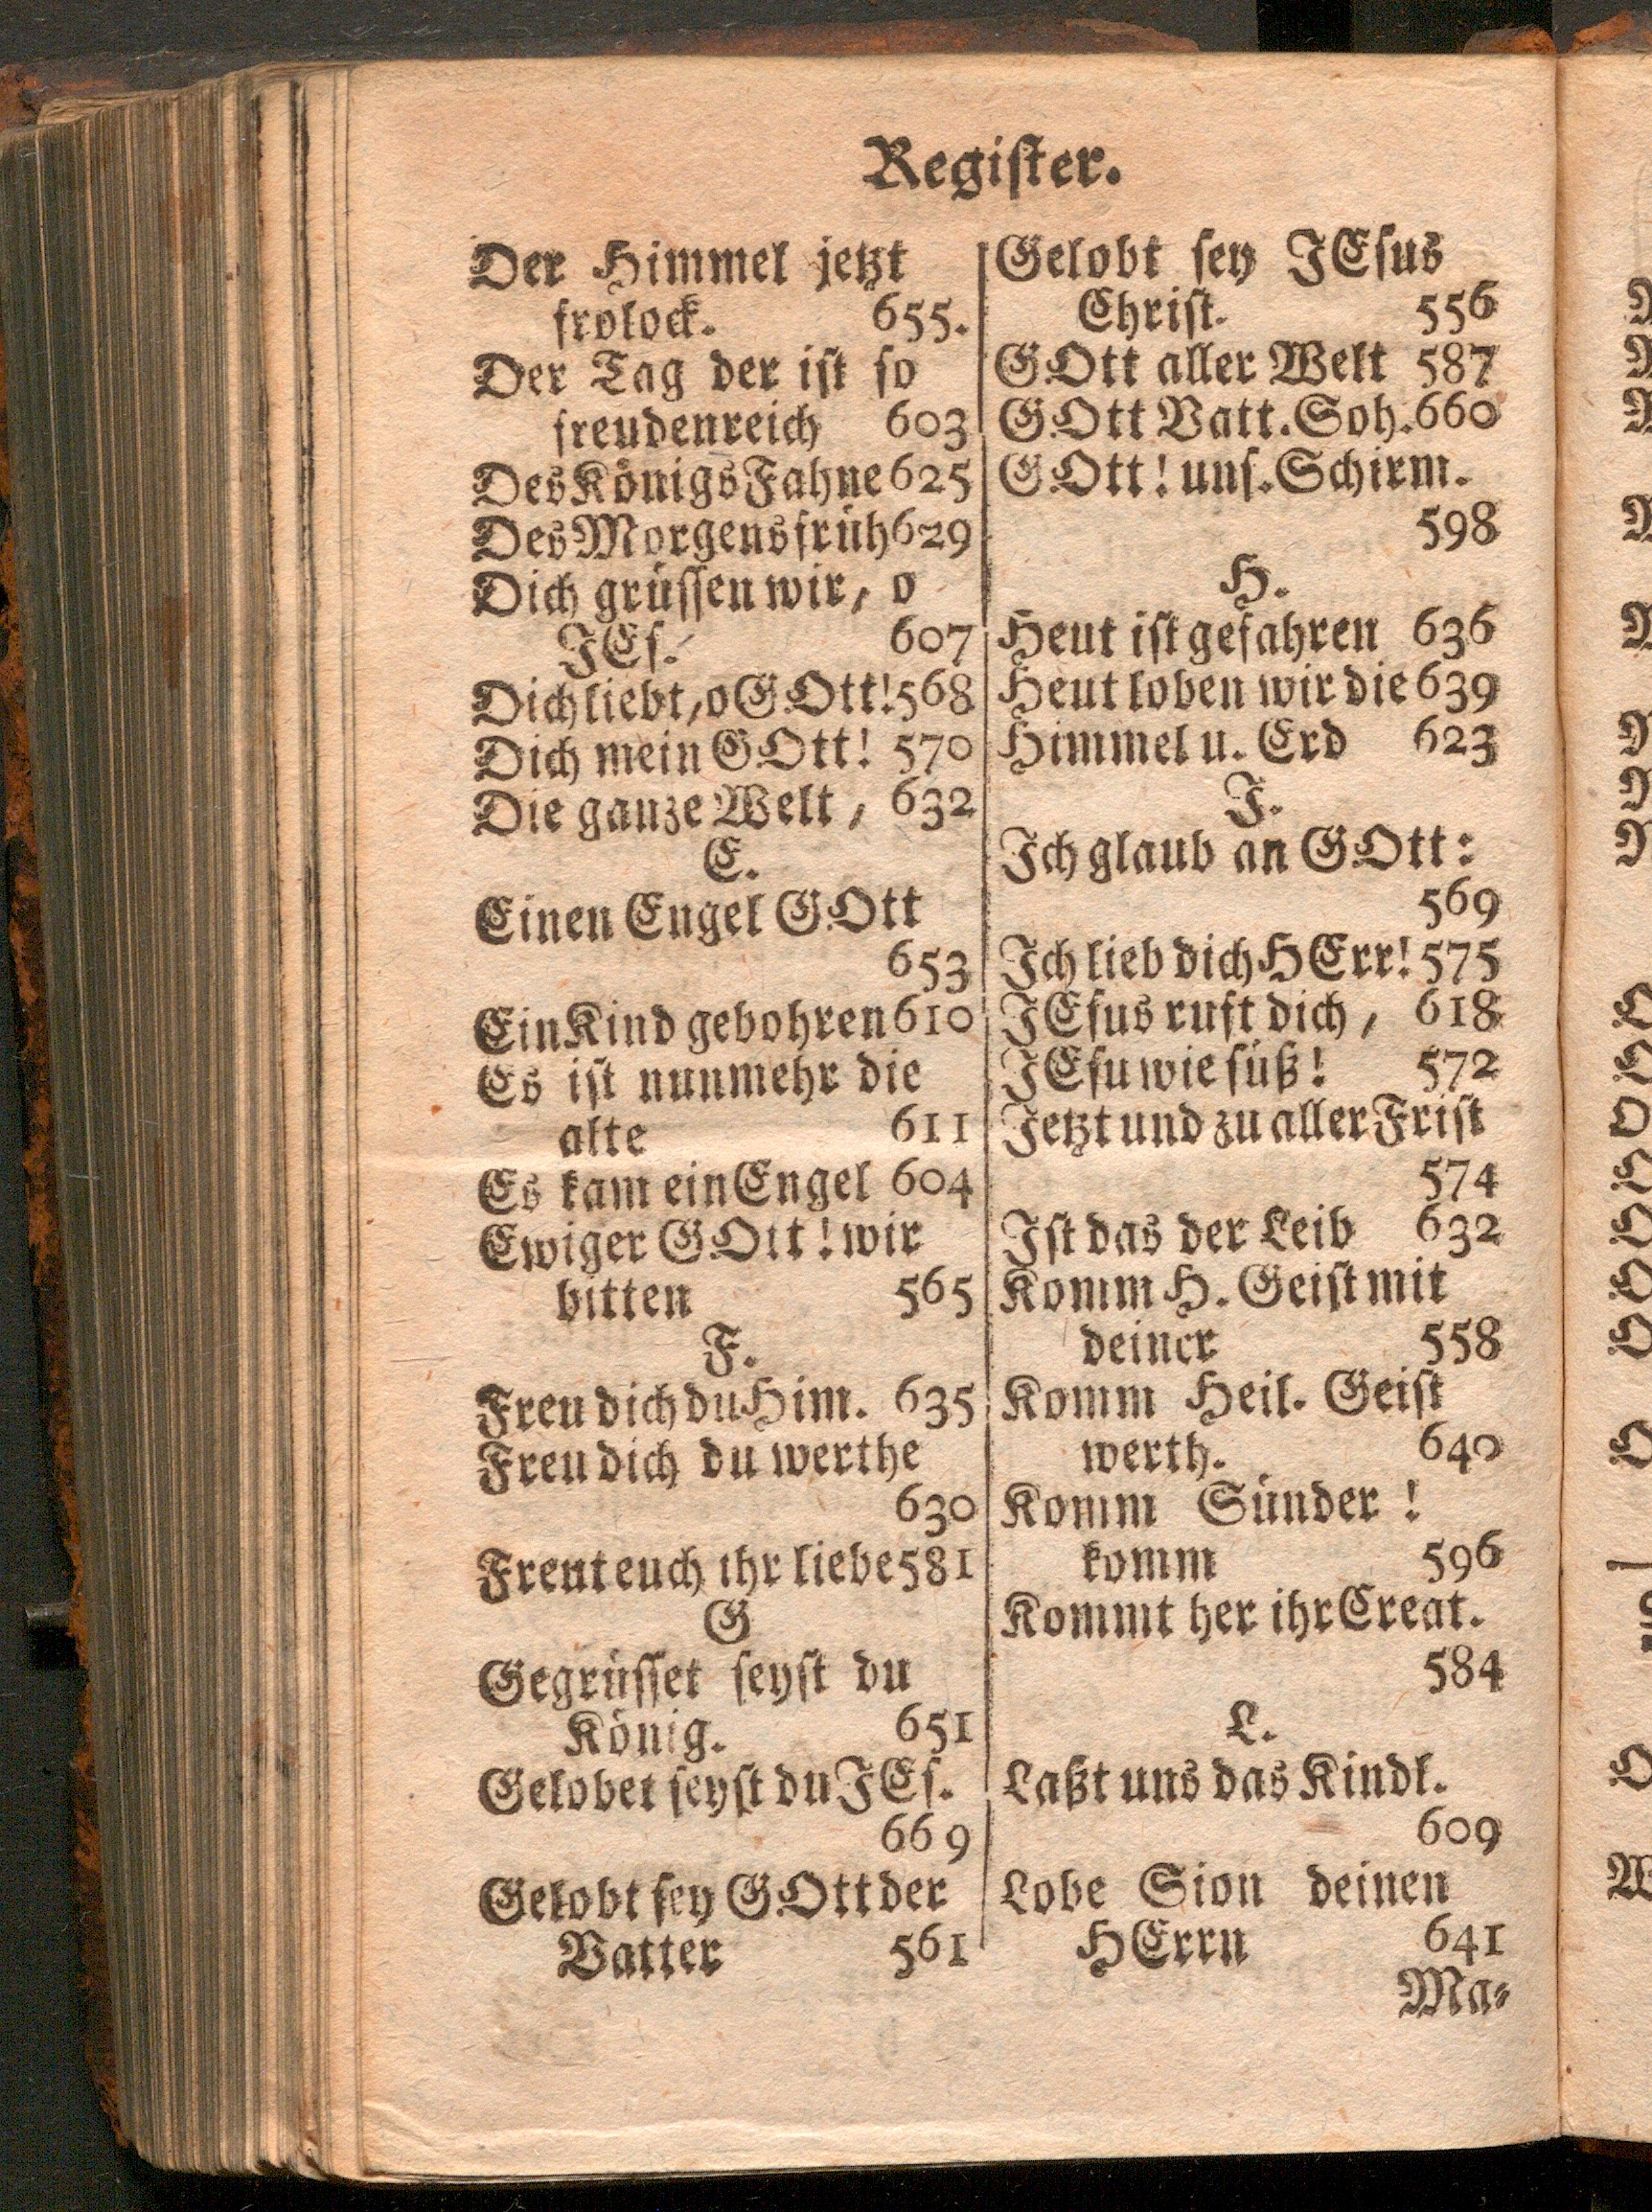 Register.
Der Himmel jetzt
frolock. 655.
Der Tag der ist so
freudenreich 603
Des Königs Fahne 625
Des Morgens früh 629
Dich grüssen wir, o
JEs. 607
Dich liebt, o GOtt! 568
Dich mein GOtt! 570
Die ganze Welt, 632
E.
Einen Engel GOtt
653
Ein Kind gebohren 610
Es ist nunmehr die
alte 611
Es kam ein Engel 604
Ewiger GOtt! wir
bitten 565
F.
Freu dich du Him. 635
Freu dich du werthe
630
Freut euch ihr liebe 581
G
Gegrüsset seyst du
König. 651
Gelobet seyst du JEs.
669
Gelobt sey GOtt der
Vatter 561
Gelobt sey JEsus
Christ. 556
GOtt aller Welt 587
GOtt Vatt. Soh. 660
GOtt! uns. Schirm.
598
H.
Heut ist gefahren 636
Heut loben wir die 639
Himmel u. Erd 623
J.
Ich glaub an GOtt:
569
Ich lieb dich HErr! 575
JEsus ruft dich, 618
JEsu wie süß! 572
Jetzt und zu aller Frist
574
Ist das der Leib 632
Komm H. Geist mit
deiner 558
Komm Heil. Geist
werth. 640
Komm Sünder !
komm 596
Kommt her ihr Creat.
584
L.
Laßt uns das Kindl.
609
Lobe Sion deinen
HErrn 641
Ma-